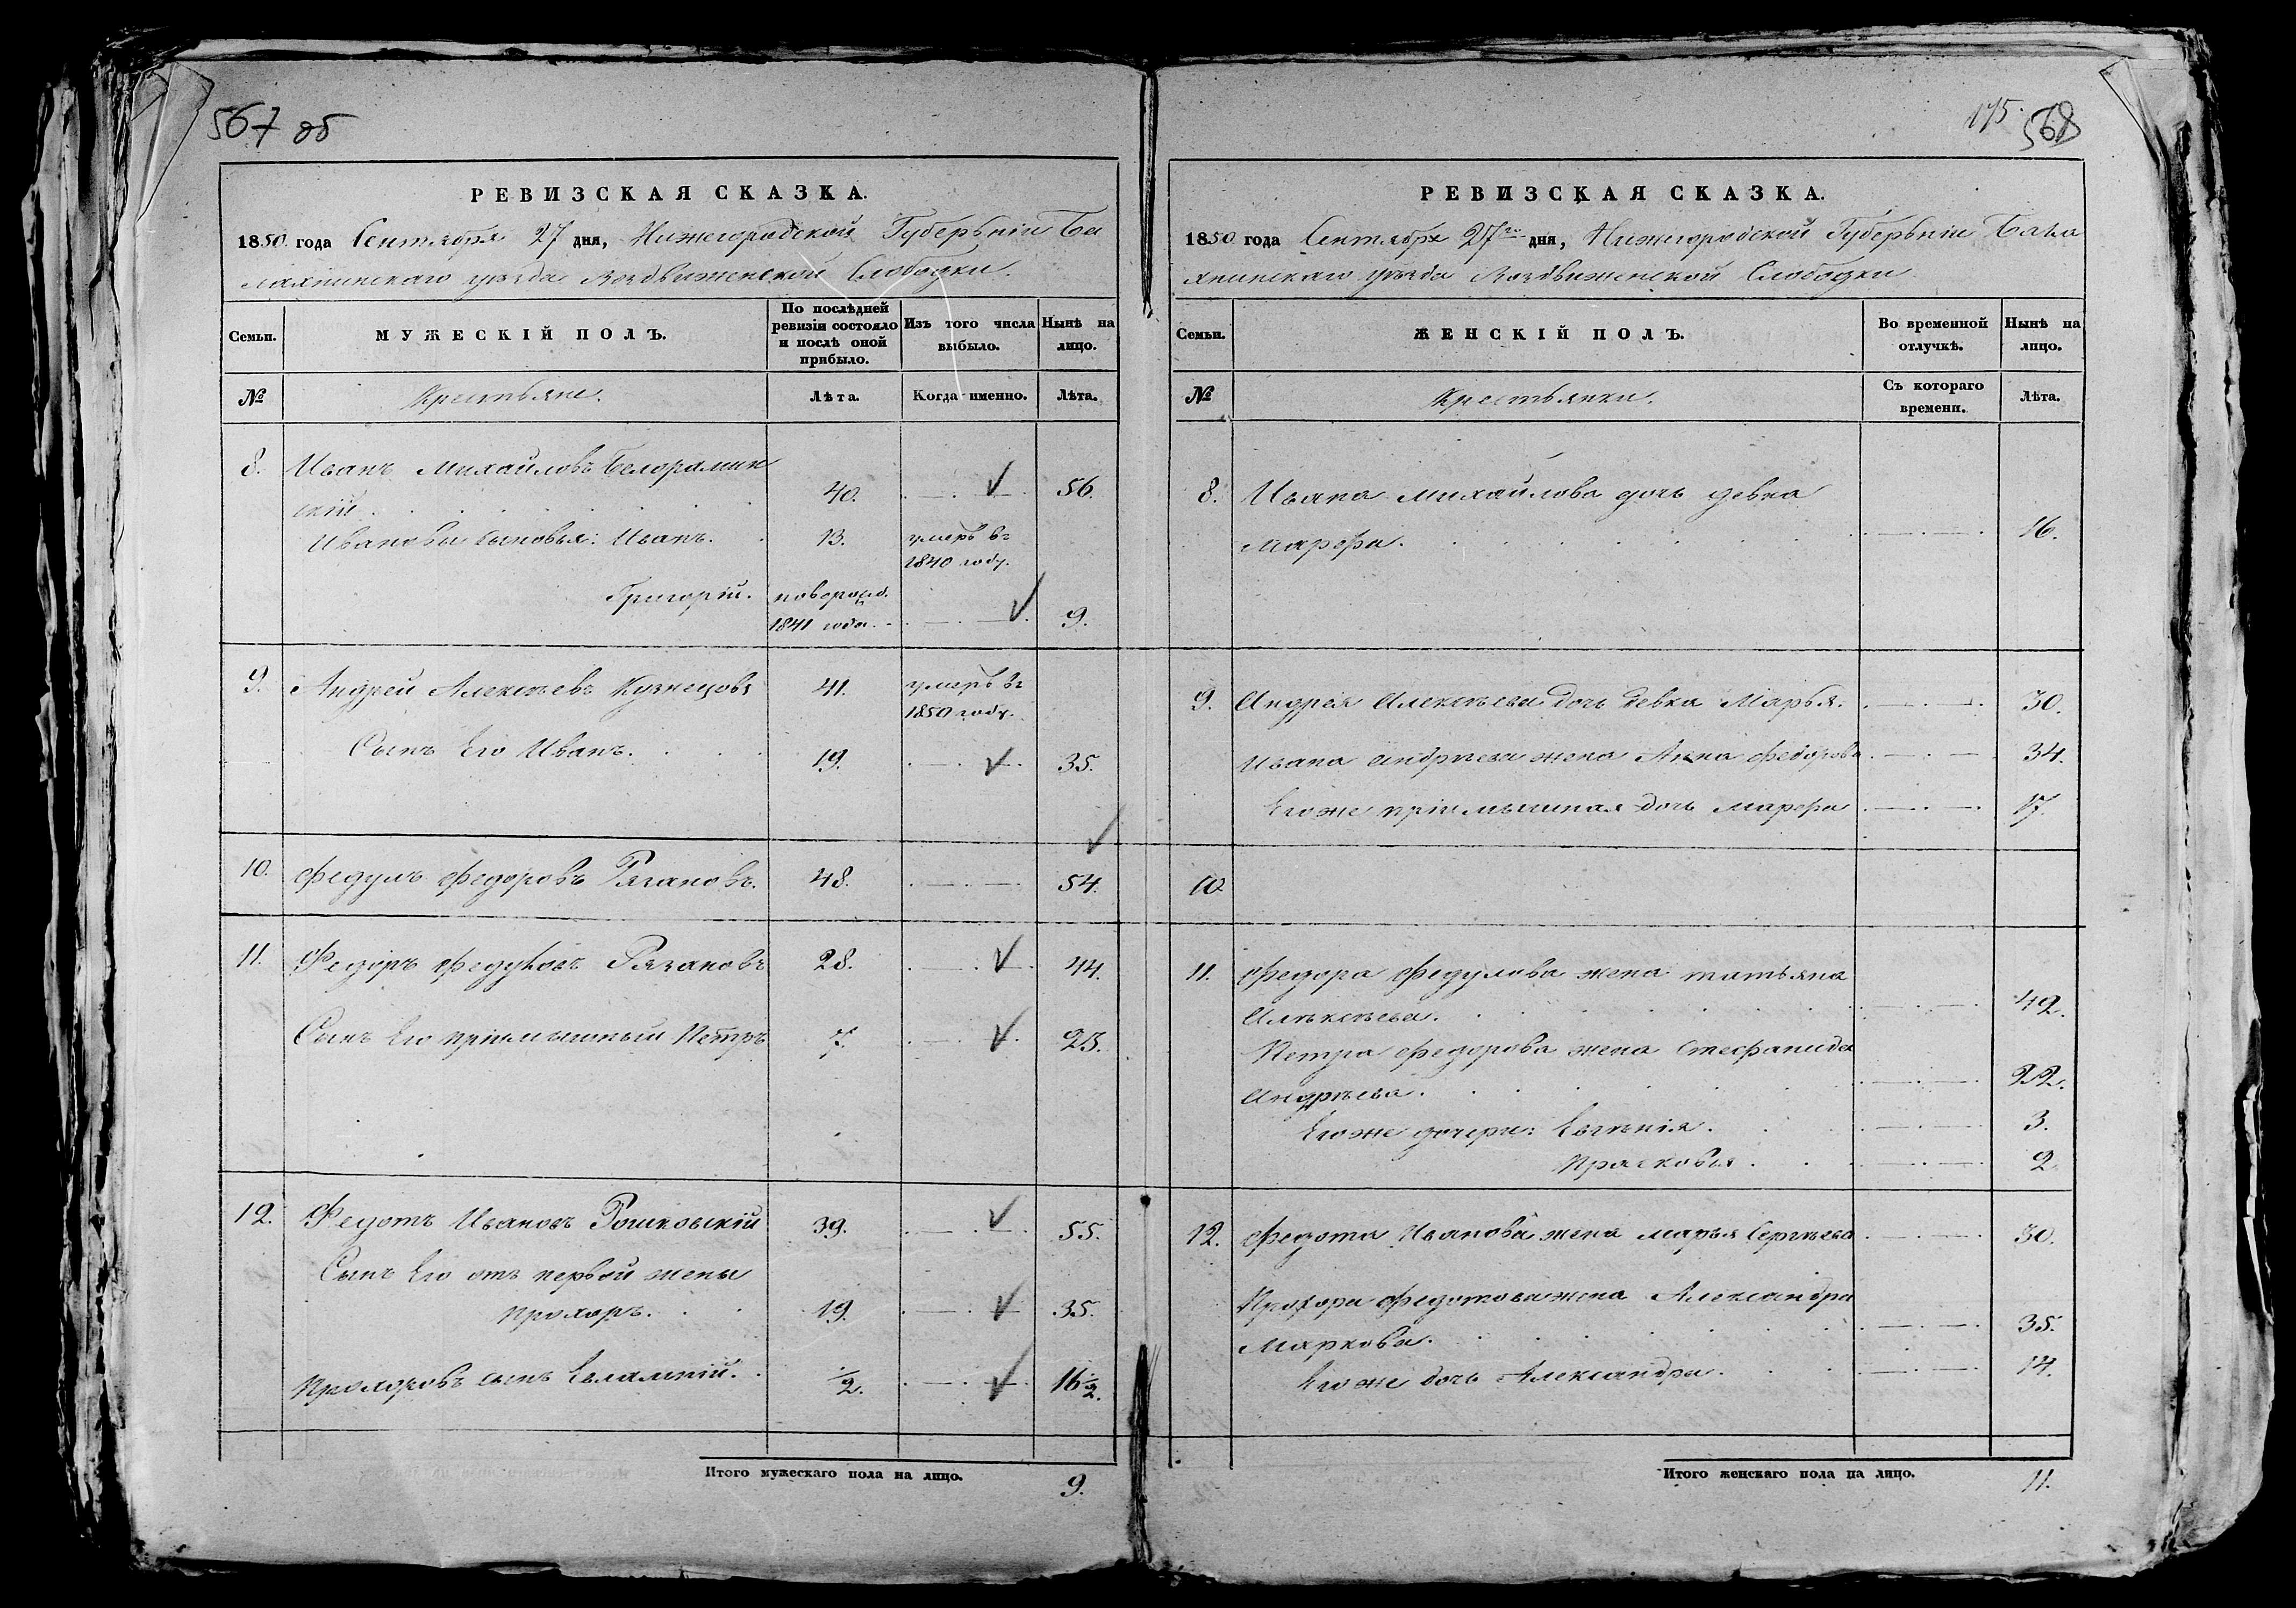 567 об
РЕВИЗСКАЯ СКАЗКА.
1850 года Сентября 27 дня, Нижегородской Губернiи Ба
лахнинскаго уѣзда Воздвиженской Слободки.
Семьи.
МУЖЕСКIЙ ПОЛЪ.
По послѣдней
ревизiи состояло
и послѣ оной
прибыло.
Изъ того числа
выбыло.
Нынѣ на
лицо.
№
Крестьяне.
Лѣта.
Когда именно.
Лѣта.
8. Иванъ Михайловъ Белорамин
скiй. 40. 56.
Ивановы сыновья: Иванъ. 13. умеръ въ
1840 году.
Григорiй. новорожд.
1841 года. 9.
9. Андрей Алексѣевъ Кузнецовъ 41. умеръ въ
1850 году.
Сынъ Его Иванъ. 19. 35.
10. Федулъ Федоровъ Рязановъ. 48. 54.
11. Федоръ Федуловъ Рязановъ 28. 44.
Сынъ Его прiимышный Петръ 7. 23.
12. Федотъ Ивановъ Рошковскiй 39. 55.
Сынъ Его отъ первой жены
Прохоръ. 19. 35.
Прохоровъ сынъ Евлампiй. 1/2. 16 1/2.
Итого мужескаго пола на лицо. 9.
175. 568
РЕВИЗСКАЯ СКАЗКА.
1850 года Сентября 27го дня, Нижегородской Губернiи Бала
хнинскаго уѣзда Воздвиженской Слободки
Семьи.
ЖЕНСКIЙ ПОЛЪ.
Во временной
отлучкѣ.
Нынѣ на
лицо.
№
Крестьянки.
Съ котораго
времени.
Лѣта.
8. Ивана Михайлова дочь девка
Марфа. 16.
9. Андрея Алексѣева дочь девка Марья. 30.
Ивана Андрѣева жена Анна Федорова 34.
Егоже прiимышная дочь Марфа 17.
10.
11. Федора Федулова жена Татьяна
Алѣксѣева. 42.
Петра Федорова жена Стефанида
Андрѣева. 22.
Егоже дочери: Евгѣнiя. 3.
Прасковья. 2
12. Федота Иванова жена Марья Сергѣева 30.
Прохора Федотова жена Александра
Маркова. 35.
Егоже дочь Александра. 14.
Итого женскаго пола на лицо. 11.